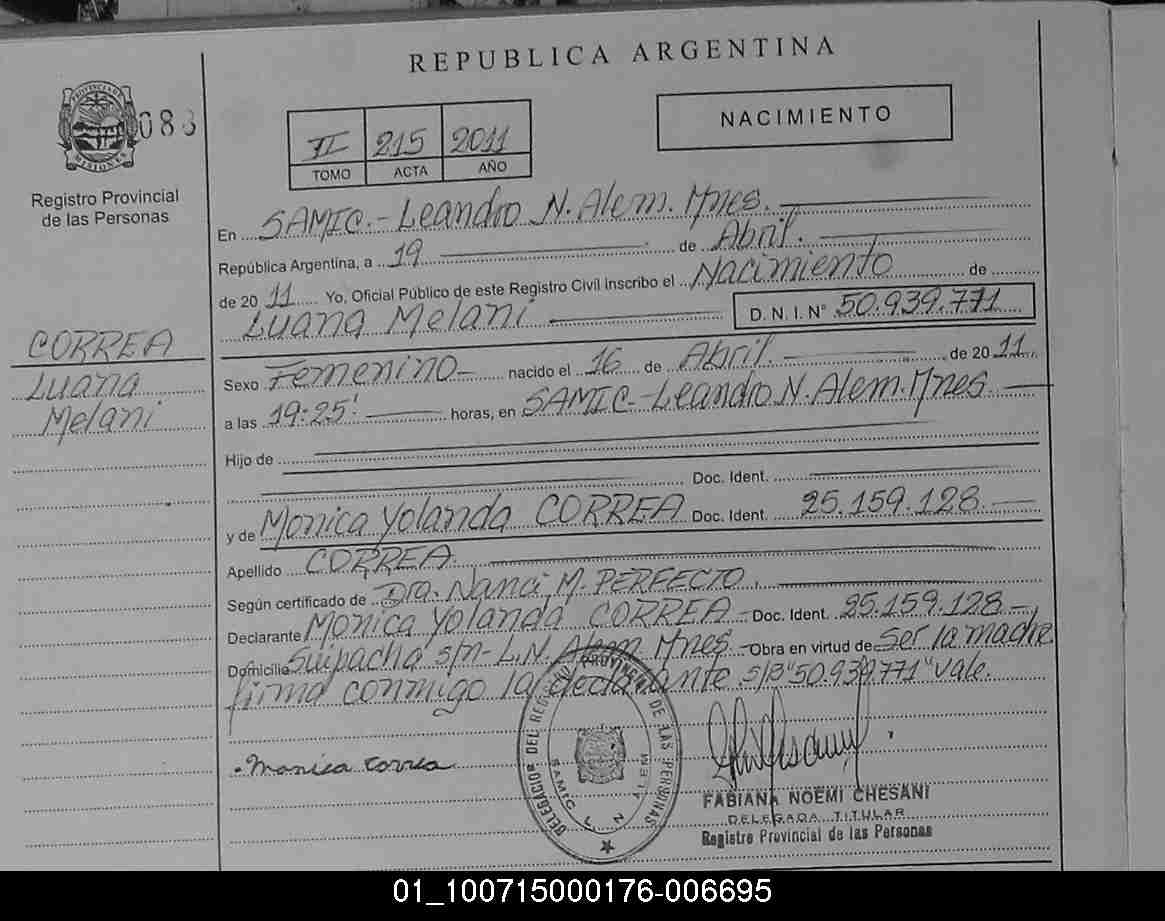 REPUBLICA ARGENTINA
PROVINCIA DE
MISIONES
088
Registro Provincial
de las Personas
II 215 2011
TOMO ACTA AÑO
NACIMIENTO
En SAMIC.- Leandro N. Alem. Mnes.
República Argentina, a 19 de Abril.
de 2011 Yo, Oficial Público de este Registro Civil inscribo el Nacimiento de
Luana Melani D. N. I. N° 50.939.771
CORREA
Luana
Melani
Sexo Femenino nacido el 16 de Abril. de 2011.
a las 19:25' horas, en SAMIC-Leandro N. Alem. Mnes
Hijo de
Doc. Ident.
y de Monica Yolanda CORREA Doc. Ident. 25.159.128
Apellido CORREA.
Según certificado de Dra. Nanci M. PERFECTO.
Declarante Monica Yolanda CORREA - Doc. Ident. 25.159.128-,
Domicilio Suipacha s/n- L.N. Alem Mnes. - Obra en virtud de Ser la madre
firma conmigo la declarante s/B "50.939.771" vale.
Monica Correa
DELEGACION DEL REGISTRO PROVINCIAL DE LAS PERSONAS
SAMIC L N ALEM
FABIANA NOEMI CHESANI
DELEGADA TITULAR
Registro Provincial de las Personas
01_100715000176-006695